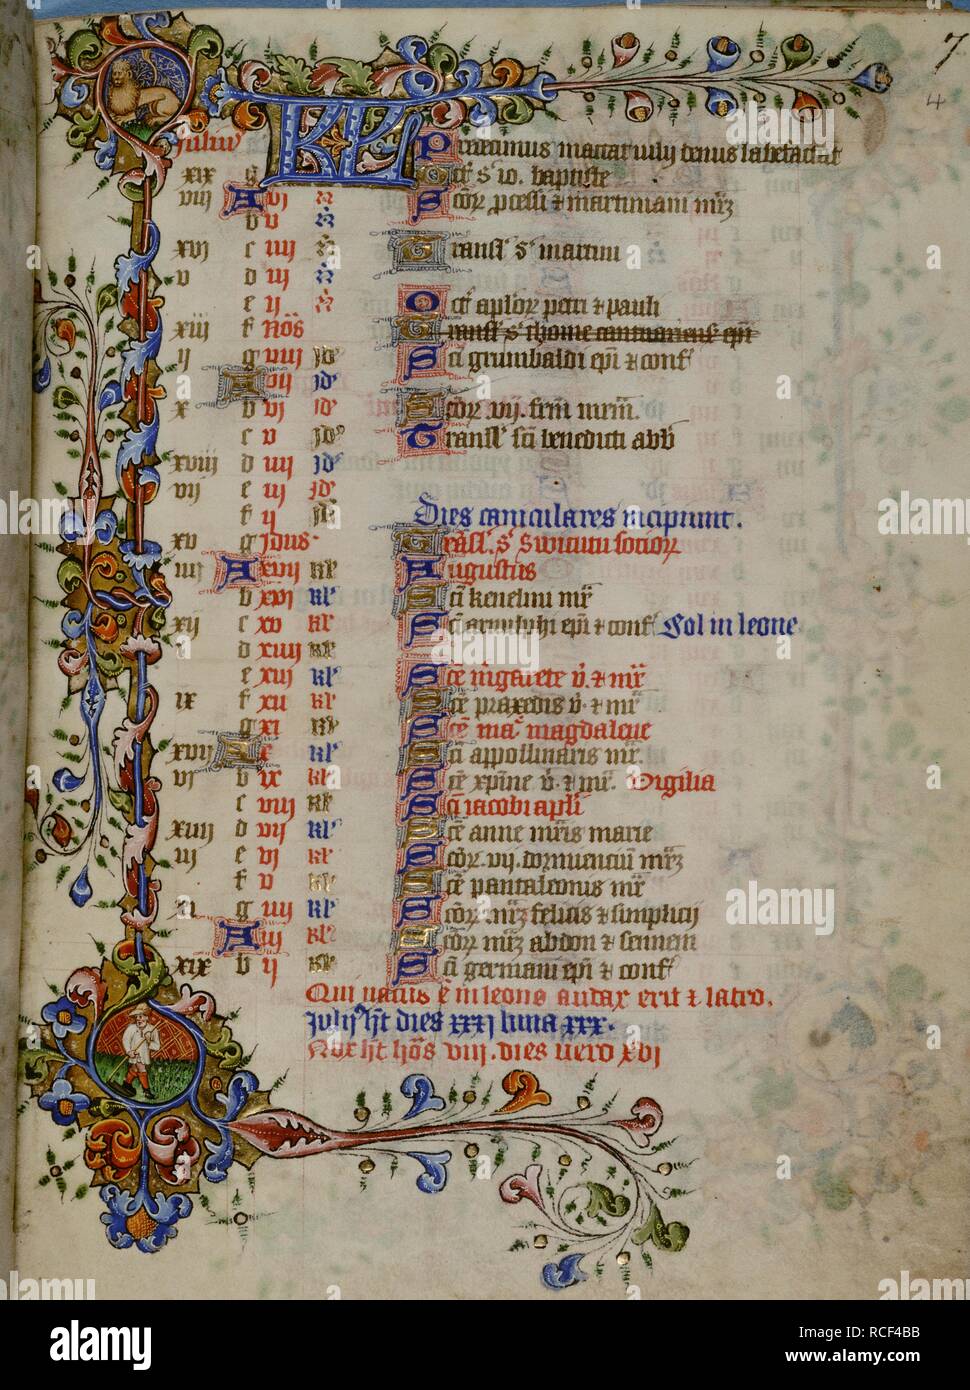 7
4
Juliu
KL Prodecimus mactat iulij denus labefactat
xix g Oct̄ s̄ io. baptiste
viij A vj n̄ Scōꝝ p̄cessi ⁊ martiniani mr̄ꝫ
b v n̄
xvj c iiij n̄ Transl̄ s̄ martini
v d iij n̄
e ij n̄ Oct̄ apl̄oꝝ petri ⁊ pauli
xiij f Nōs Transl̄ s̄ thome cantuariens̄ ep̄i
ij g viij jd̄ Sc̄i grimbaldi ep̄i ⁊ conf̄
A vij jd̄
x b vj jd̄ Scōꝝ vij. fr̄m mr̄m.
c v jd̄ Transl̄ sc̄i benedicti abb̄
xviij d iiij jd̄
vij e iij jd̄
f ij jd̄ Dies caniculares incipiunt.
xv g Jdus. Trāsl̄. s̄ Swithuni socioꝝ
iiij A xvij kl̄ Augustus
b xvj kl̄ Sc̄i kenelmi mr̄
xij c xv kl̄ Sc̄i arnulphi ep̄i ⁊ conf̄ Sol in leone
i d xiiij kl̄
e xiij kl̄ Sc̄e m̄garete v̄. ⁊ mr̄
ix f xij kl̄ Sc̄e praxedis v̄. ⁊ mr̄
g xj kl̄ Sc̄e ma. magdalene
xvij A x kl̄ Sc̄i appollinaris mr̄.
vj b ix kl̄ Sc̄e xp̄ine v̄. ⁊ mr̄. Vigilia
c viij kl̄ Sc̄i iacobi apl̄i
xiiij d vij kl̄ Sc̄e anne mr̄is marie
iij e vj kl̄ Scōꝝ. vij. dormienciū mr̄ꝫ
f v kl̄ Sc̄i pantaleonis mr̄
xi g iiij kl̄ Scōꝝ mr̄ꝫ felicis ⁊ simplicij
A iij kl̄ Scōꝝ mr̄ꝫ abdon ⁊ sennem
xix b ij kl̄ Sc̄i germani ep̄i ⁊ conf̄
Qui natus ē in leone audax erit ⁊ latro.
Julij h̄t dies xxxj luna xxx.
Nox h̄t hōs viij. dies vero xvj
alamy
Image ID: RCF4BB
www.alamy.com